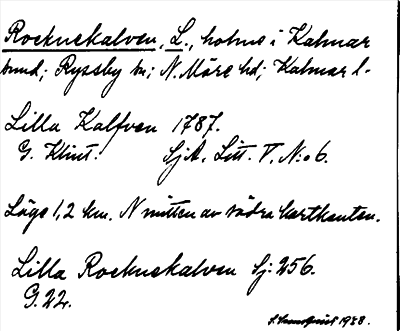 Rocknekalven, L., holme i Kalmar
sund; Ryssby sn; N. Möre hd; Kalmar l.
Lilla Kalfven 1787.
G. Klint. SjA. Litt. V, N:o 6.
Läge 1,2 km. N mitten av södra kartkanten.
Lilla Rocknekalven Sj: 256.
G. 22.
1938.